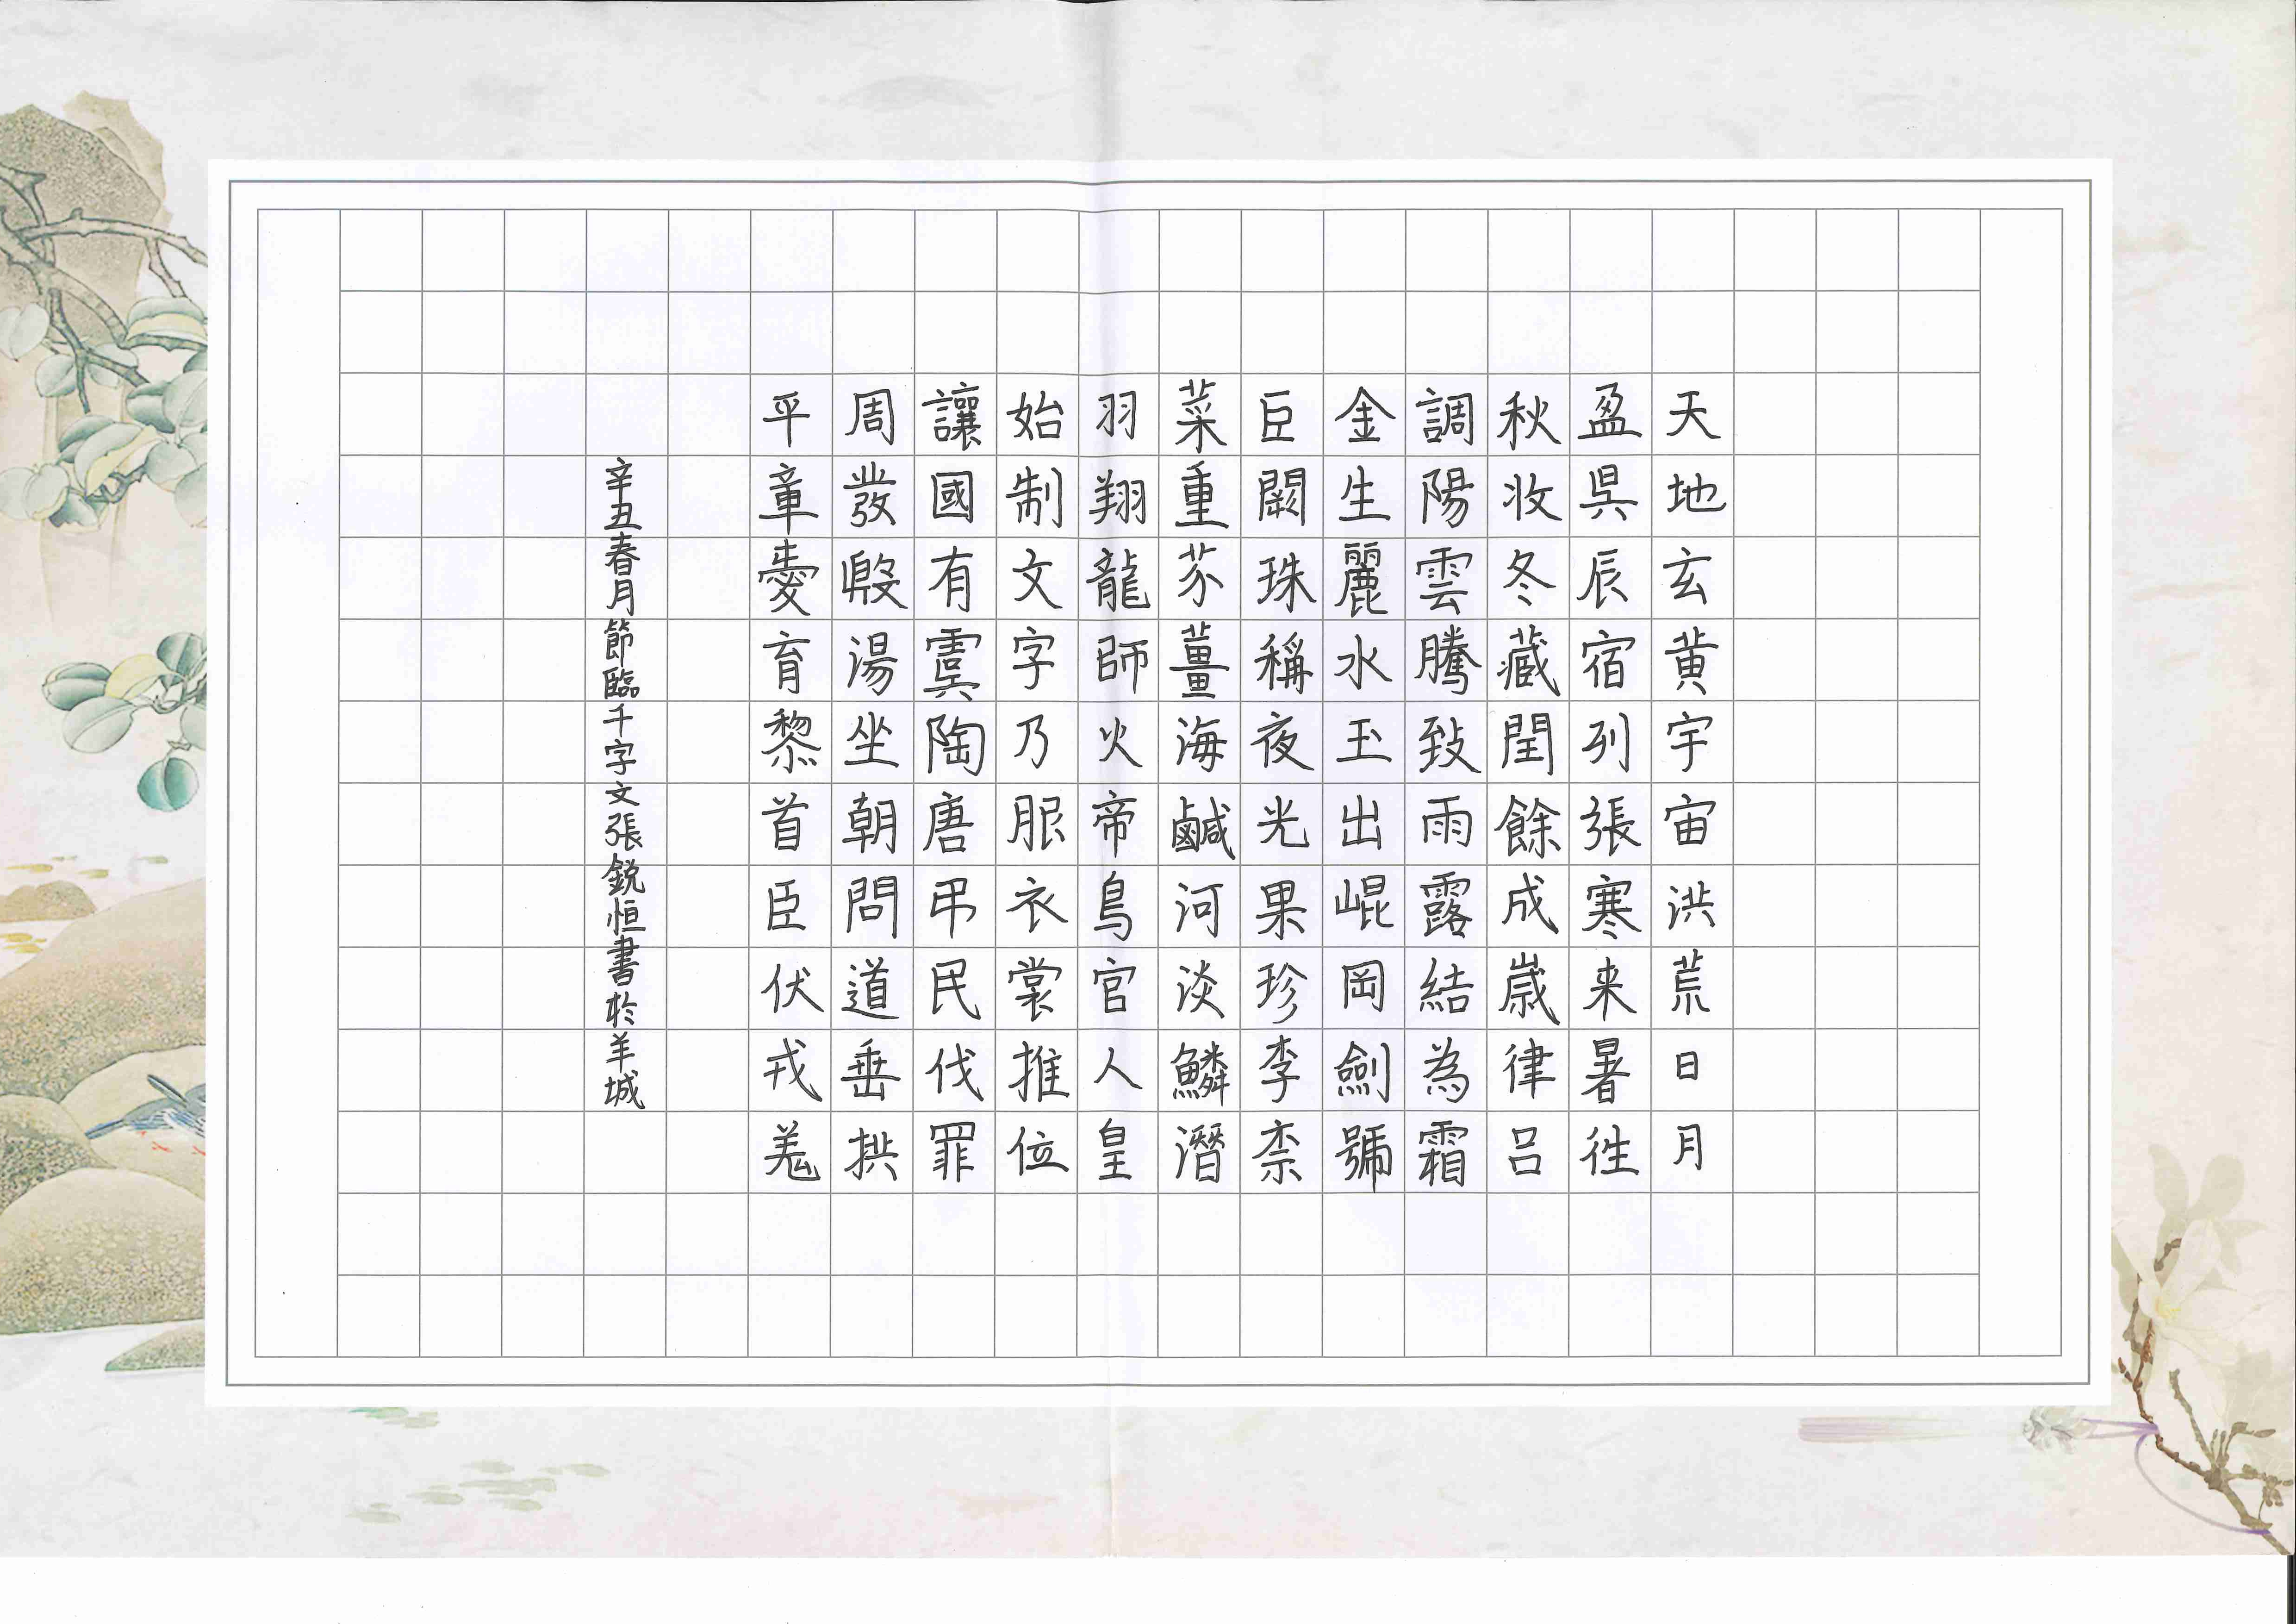 天地玄黄宇宙洪荒日月
盈吳辰宿列張寒来暑往
秋收冬藏閏餘成歲律呂
調陽雲騰致雨露結為霜
金生麗水玉出崐岡劍號
巨闕珠稱夜光果珍李柰
菜重芥薑海鹹河淡鱗潛
羽翔龍師火帝鳥官人皇
始制文字乃服衣裳推位
讓國有虞陶唐弔民伐罪
周發殷湯坐朝問道垂拱
平章愛育黎首臣伏戎羌
辛丑春月節臨千字文張銳恒書於羊城